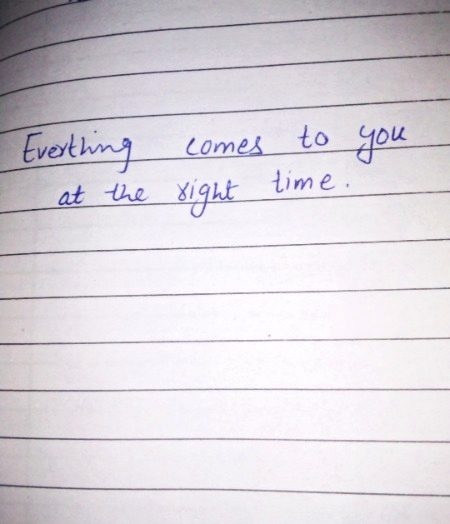 Everthing comes to you
at the right time.